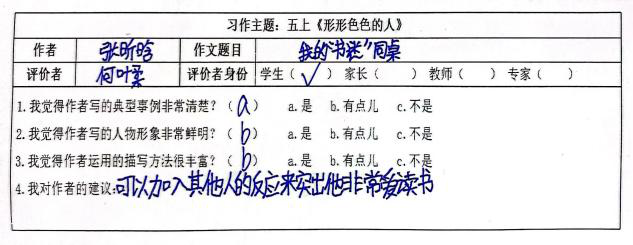 习作主题：五上《形形色色的人》
作者 张昕晗 作文题目 我的“书迷”同桌
评价者 何叶柔 评价者身份 学生（✓） 家长（ ） 教师（ ） 专家（ ）
1.我觉得作者写的典型事例非常清楚？（a） a.是 b.有点儿 c.不是
2.我觉得作者写的人物形象非常鲜明？（b） a.是 b.有点儿 c.不是
3.我觉得作者运用的描写方法很丰富？（b） a.是 b.有点儿 c.不是
4.我对作者的建议：可以加入其他人的反应来突出他非常爱读书